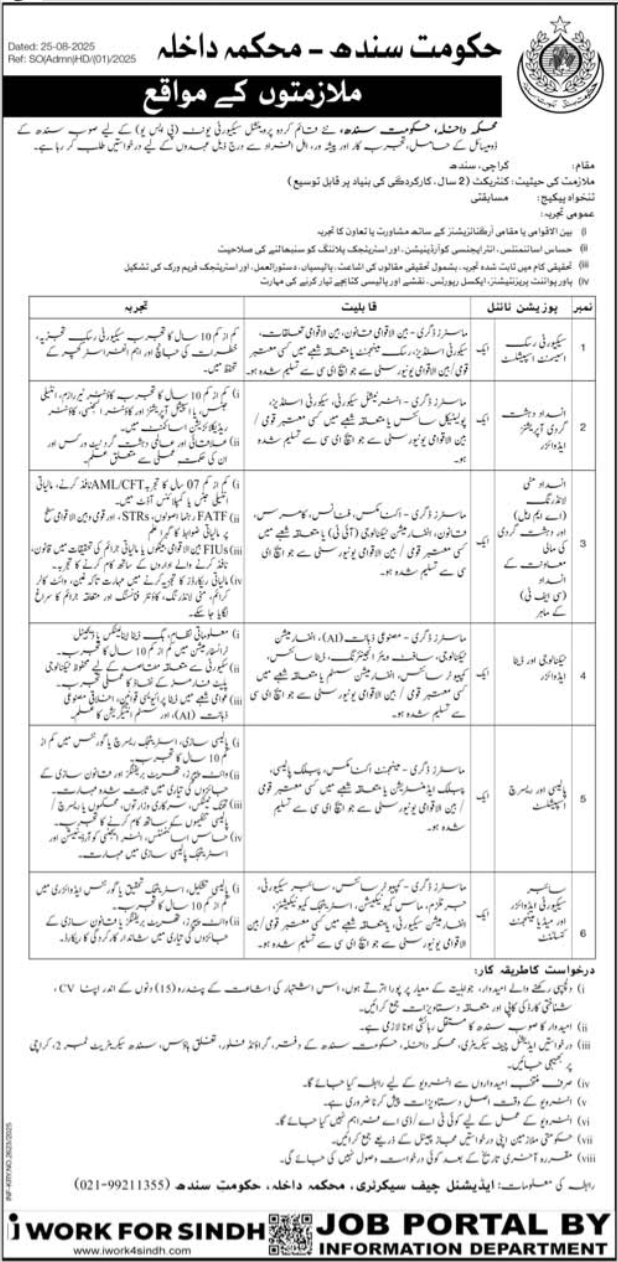 حکومت سندھ - محکمہ داخلہ
Dated: 25-08-2025
Ref: SO(Admn)HD/(01)/2025
ملازمتوں کے مواقع
محکمہ داخلہ، حکومت سندھ، نئے قائم کردہ پروونشل سیکورٹی یونٹ (پی ایس یو) کے لیے صوبہ سندھ کے
ڈومیسائل کے حامل، تجربہ کار اور پیشہ ور، اہل افراد سے درج ذیل عہدوں کے لیے درخواستیں طلب کر رہا ہے۔
مقام: کراچی، سندھ
ملازمت کی حیثیت: کنٹریکٹ (2 سال، کارکردگی کی بنیاد پر قابل توسیع)
تنخواہ پیکیج: مسابقتی
عمومی تجربہ:
(i بین الاقوامی یا مقامی آرگنائزیشنز کے ساتھ مشاورت یا تعاون کا تجربہ
(ii حساس اسائنمنٹس، انٹرایجنسی کوآرڈینیشن، اور اسٹریٹجک پلاننگ کو سنبھالنے کی صلاحیت
(iii تحقیقی کام میں ثابت شدہ تجربہ، بشمول تحقیقی مقالوں کی اشاعت، پالیسیاں، دستورالعمل، اور اسٹریٹجک فریم ورک کی تشکیل
(iv پاور پوائنٹ پریزنٹیشنز، ایکسل رپورٹس، نقشے اور پالیسی کتابچے تیار کرنے کی مہارت
نمبر پوزیشن ٹائٹل قابلیت تجربہ
1 سیکورٹی رسک
اسیسمنٹ اسپیشلسٹ
ایک
ماسٹرز ڈگری - بین الاقوامی قانون، بین الاقوامی تعلقات،
سیکورٹی اسٹڈیز، رسک مینجمنٹ یا متعلقہ شعبے میں کسی معتبر
قومی / بین الاقوامی یونیورسٹی سے جو ایچ ای سی سے تسلیم شدہ ہو۔
کم از کم 10 سال کا تجربہ سیکورٹی رسک تجزیہ،
خطرات کی جانچ اور اہم انفراسٹرکچر کے
تحفظ میں۔
2 انسداد دہشت
گردی آپریشنز
ایڈوائزر
ایک
ماسٹرز ڈگری - انٹرنیشنل سیکورٹی، سیکورٹی اسٹڈیز،
پولیٹیکل سائنس یا متعلقہ شعبے میں کسی معتبر قومی /
بین الاقوامی یونیورسٹی سے جو ایچ ای سی سے تسلیم شدہ
ہو۔
(i کم از کم 10 سال کا تجربہ کاؤنٹر ٹیررازم، انٹیلی
جنس، یا اسپیشل آپریشنز اور کاؤنٹر انسرجنسی، کاؤنٹر
ریڈیکلائزیشن اسائنمنٹس میں۔
(ii علاقائی اور عالمی دہشت گرد نیٹ ورکس اور
ان کی حکمت عملی سے متعلق علم۔
3 انسداد منی
لانڈرنگ
(اے ایم ایل)
اور دہشت گردی
کی مالی
معاونت کے
انسداد
(سی ایف ٹی)
کے ماہر
ایک
ماسٹرز ڈگری - اکنامکس، فنانس، کامرس،
قانون، انفارمیشن ٹیکنالوجی (آئی ٹی) یا متعلقہ شعبے میں
کسی معتبر قومی / بین الاقوامی یونیورسٹی سے جو ایچ ای
سی سے تسلیم شدہ ہو۔
(i کم از کم 07 سال کا تجربہ AML/CFT نافذ کرنے، مالیاتی
انٹیلی جنس یا کمپلائنس آڈٹ میں۔
(ii FATF رہنما اصولوں، STRs، اور قومی و بین الاقوامی سطح
پر مالیاتی ضوابط کا گہرا علم
(iii FIUs بین الاقوامی بینکوں یا مالیاتی جرائم کی تحقیقات میں قانون،
نافذ کرنے والے اداروں کے ساتھ کام کرنے کا تجربہ۔
(iv مالیاتی ریکارڈز کا تجزیہ کرنے میں مہارت تاکہ غبن، وائٹ کالر
کرائم، منی لانڈرنگ، کاؤنٹر فنانسنگ اور متعلقہ جرائم کا سراغ
لگایا جاسکے۔
4 ٹیکنالوجی اور ڈیٹا
ایڈوائزر
ایک
ماسٹرز ڈگری - مصنوعی ذہانت (AI)، انفارمیشن
ٹیکنالوجی، سافٹ ویئر انجینئرنگ، ڈیٹا سائنس،
کمپیوٹر سائنس، انفارمیشن سسٹم یا متعلقہ شعبے میں
کسی معتبر قومی / بین الاقوامی یونیورسٹی سے جو ایچ ای سی
سے تسلیم شدہ ہو۔
(i معلوماتی نظام، بگ ڈیٹا اینالیٹکس یا ڈیجیٹل
ٹرانسفارمیشن میں کم از کم 10 سال کا تجربہ۔
(ii سیکورٹی سے متعلقہ مقاصد کے لیے محفوظ ٹیکنالوجی
پلیٹ فارمز کے نفاذ کا عملی تجربہ۔
(iii عوامی شعبے میں ڈیٹا پرائیویسی قوانین، اخلاقی مصنوعی
ذہانت (AI)، اور سسٹم انٹیگریشن کا علم۔
5 پالیسی اور ریسرچ
اسپیشلسٹ
ایک
ماسٹرز ڈگری - مینجمنٹ اکنامکس، پبلک پالیسی،
پبلک ایڈمنسٹریشن یا متعلقہ شعبے میں کسی معتبر قومی
/ بین الاقوامی یونیورسٹی سے جو ایچ ای سی سے تسلیم
شدہ ہو۔
(i پالیسی سازی، اسٹریٹجک ریسرچ یا گورننس میں کم از
کم 10 سال کا تجربہ۔
(ii وائٹ پیپرز، تھریٹ بریفنگز اور قانون سازی کے
جائزوں کی تیاری میں ثابت شدہ مہارت۔
(iii تھنک ٹینکس، سرکاری وزارتوں، محکموں یا ریسرچ /
پالیسی تنظیموں کے ساتھ کام کرنے کا تجربہ۔
(iv حساس اسائنمنٹس، انٹر ایجنسی کوآرڈینیشن اور
اسٹریٹجک پالیسی سازی میں مہارت۔
6 سائبر
سیکورٹی ایڈوائزر
اور میڈیا مینجمنٹ
کنسلٹنٹ
ایک
ماسٹرز ڈگری - کمپیوٹر سائنس، سائبر سیکورٹی،
جرنلزم، ماس کمیونیکیشن، اسٹریٹجک کمیونیکیشنز،
انفارمیشن سیکورٹی، یا متعلقہ شعبے میں کسی معتبر قومی / بین
الاقوامی یونیورسٹی سے جو ایچ ای سی سے تسلیم شدہ ہو۔
(i پالیسی تشکیل، اسٹریٹجک تحقیق یا گورننس ایڈوائزری میں
کم از کم 10 سال کا تجربہ۔
(ii وائٹ پیپرز، تھریٹ بریفنگز یا قانون سازی کے
جائزوں کی تیاری میں شاندار کارکردگی کا ریکارڈ۔
درخواست کا طریقہ کار:
(i دلچسپی رکھنے والے امیدوار، جو اہلیت کے معیار پر پورا اترتے ہوں، اس اشتہار کی اشاعت کے پندرہ (15) دنوں کے اندر اپنا CV،
شناختی کارڈ کی کاپی اور متعلقہ دستاویزات جمع کرائیں۔
(ii امیدوار کا صوبہ سندھ کا مستقل رہائشی ہونا لازمی ہے۔
(iii درخواستیں ایڈیشنل چیف سیکریٹری، محکمہ داخلہ، حکومت سندھ کے دفتر، گراؤنڈ فلور، تغلق ہاؤس، سندھ سیکریٹریٹ نمبر 2، کراچی
پر بھیجی جائیں۔
(iv صرف منتخب امیدواروں سے انٹرویو کے لیے رابطہ کیا جائے گا۔
(v انٹرویو کے وقت اصل دستاویزات پیش کرنا ضروری ہے۔
(vi انٹرویو کے عمل کے لیے کوئی ٹی اے/ڈی اے فراہم نہیں کیا جائے گا۔
(vii حکومتی ملازمین اپنی درخواستیں مجاز چینل کے ذریعے جمع کرائیں۔
(viii مقررہ آخری تاریخ کے بعد کوئی درخواست وصول نہیں کی جائے گی۔
رابطہ کی معلومات: ایڈیشنل چیف سیکرٹری، محکمہ داخلہ، حکومت سندھ (021-99211355)
INF-KRY.NO.2623/2025
i WORK FOR SINDH
www.iwork4sindh.com
JOB PORTAL BY
INFORMATION DEPARTMENT